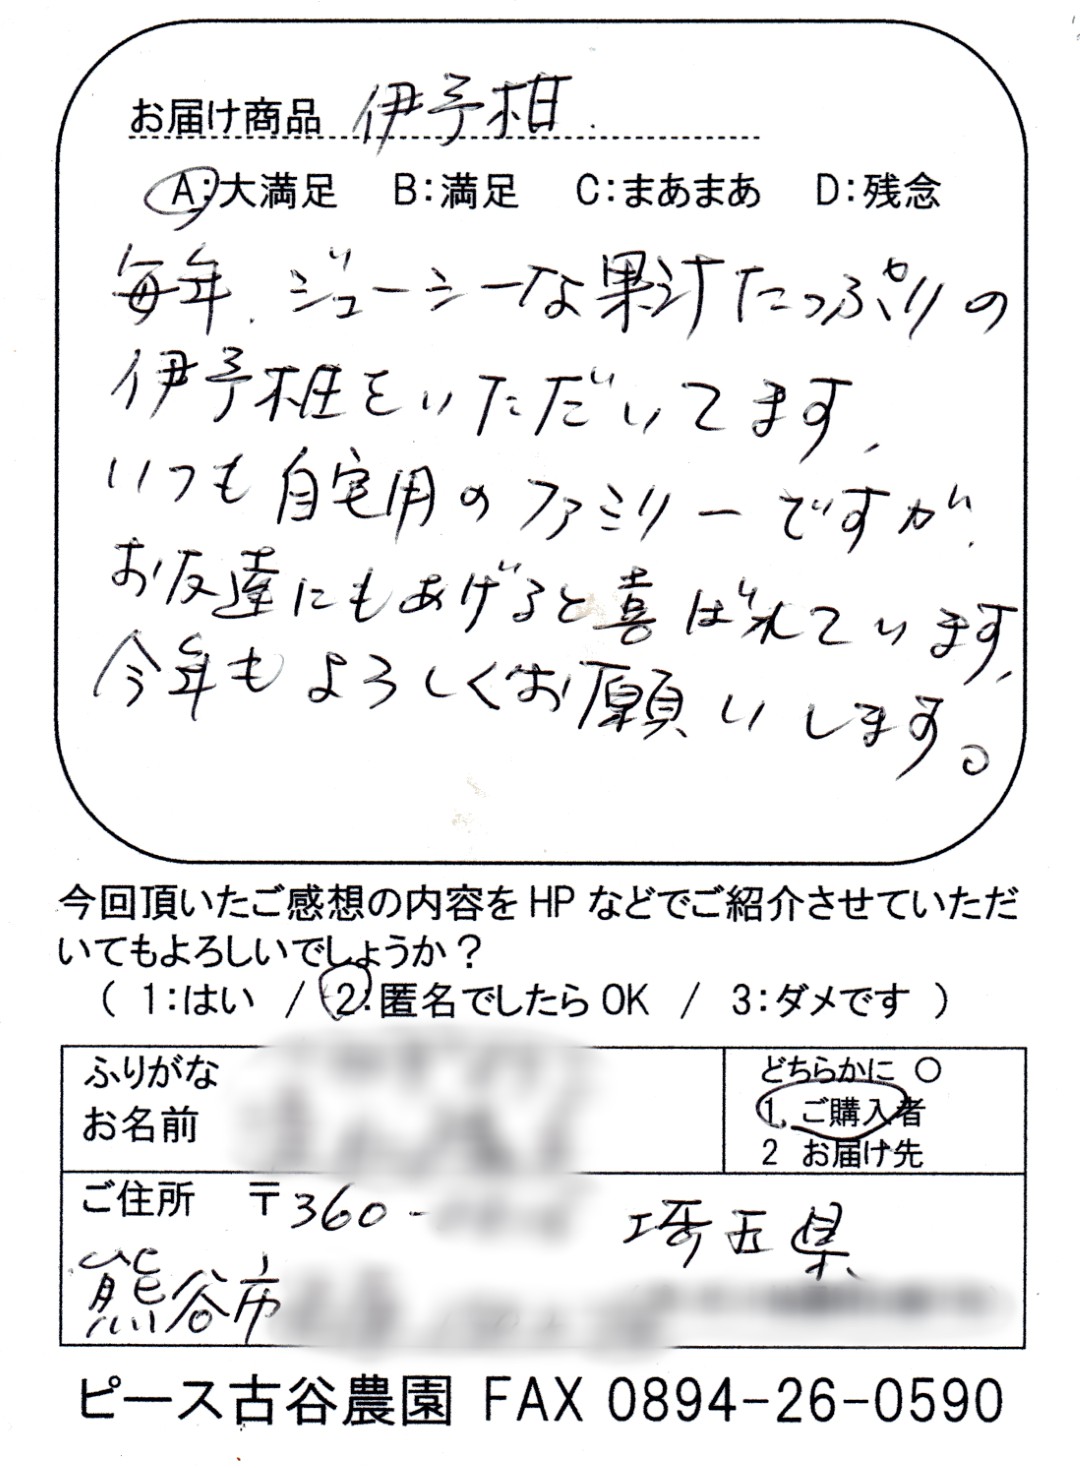 お届け商品 伊予柑
A:大満足 B:満足 C:まあまあ D:残念
毎年、ジューシーな果汁たっぷりの
伊予柑をいただいてます、
いつも自宅用のファミリーですが、
お友達にもあげると喜ばれています、
今年もよろしくお願いします。
今回頂いたご感想の内容をHPなどでご紹介させていただ
いてもよろしいでしょうか?
( 1:はい / 2:匿名でしたらOK / 3:ダメです )
ふりがな
お名前
どちらかに ○
1. ご購入者
2 お届け先
ご住所 〒360- 埼玉県
熊谷市
ピース古谷農園 FAX 0894-26-0590